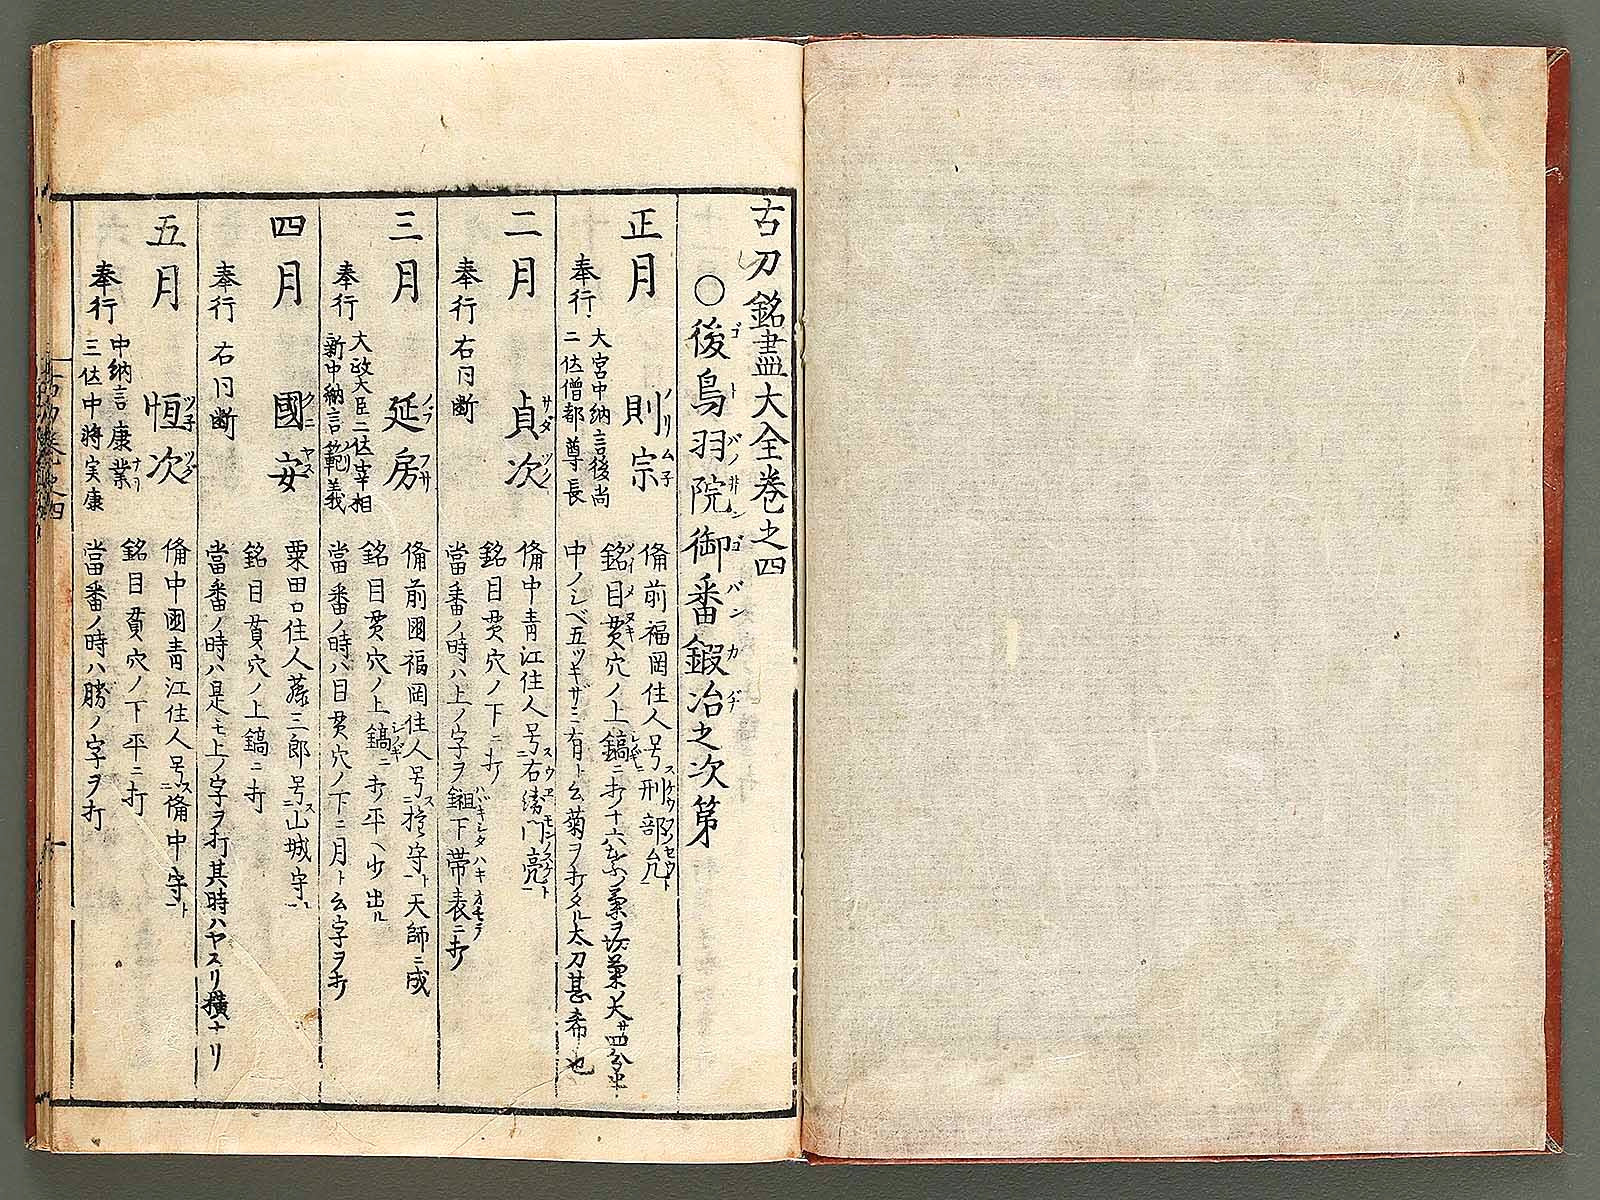 古刀銘盡大全巻之四
○後鳥羽院御番鍛冶之次第
正月 則宗 備前福岡住人号刑部允
銘目貫穴ノ上鎬ニ打十六葉ノ菊ヲ
奉行 大宮中納言後尚 二位僧都尊長
中ノシベ五ツキザミ有ト云菊ヲ打タル太刀甚希也
二月 貞次 備中青江住人号右衛門亮
銘目貫穴ノ下ニ打
奉行 右同断
當番ノ時ハ上ノ字ヲ鎺下帯表ニ打
三月 延房 備前國福岡住人号 守ト天師ニ成
銘目貫穴ノ上鎬ニ打平ヘ少出ル
奉行 大政大臣二位宰相 新中納言範義
當番ノ時ハ目貫穴ノ下ニ月ト云字ヲ打
四月 國安 粟田口住人藤三郎号山城守
銘目貫穴ノ上鎬ニ打
奉行 右同断
當番ノ時ハ是モ上ノ字ヲ打其時ハヤスリ横ナリ
五月 恒次 備中國青江住人号備中守ト
銘目貫穴ノ下平ニ打
奉行 中納言康業 三位中将実康
當番ノ時ハ勝ノ字ヲ打